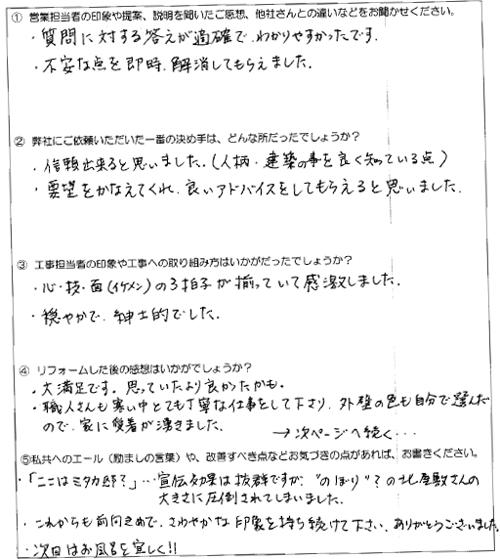 ① 営業担当者の印象や提案、説明を聞いたご感想、他社さんとの違いなどをお聞かせください。
・質問に対する答えが適確で、わかりやすかったです。
・不安な点を即時、解消してもらえました。
② 弊社にご依頼いただいた一番の決め手は、どんな所だったでしょうか？
・信頼出来ると思いました。（人柄・建築の事を良く知っている点）
・要望をかなえてくれ、良いアドバイスをしてもらえると思いました。
③ 工事担当者の印象や工事への取り組み方はいかがだったでしょうか？
・心・技・面（イケメン）の3拍子が揃っていて感激しました。
・穏やかで、紳士的でした。
④ リフォームした後の感想はいかがでしょうか？
・大満足です。思っていたより良かったかも。
・職人さんも寒い中とても丁寧な仕事をして下さり、外壁の色も自分で選んだ
ので、家に愛着が湧きました。
→次ページへ続く・・・
⑤私共へのエール（励ましの言葉）や、改善すべき点などお気づきの点があれば、お書きください。
・「ここはミタカ邸？」…宣伝効果は抜群ですが、"のぼり"？の北屋敷さんの
大きさに圧倒されてしまいました。
・これからも前向きめで、さわやかな印象を持ち続けて下さい。ありがとうございました
・次回はお風呂を宜しく!!